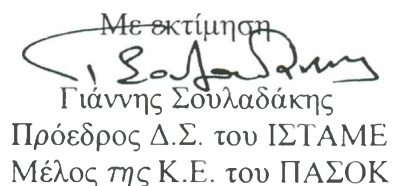 Με εκτίμηση
Γιάννης Σουλαδάκης
Πρόεδρος Δ.Σ. του ΙΣΤΑΜΕ
Μέλος της Κ.Ε. του ΠΑΣΟΚ